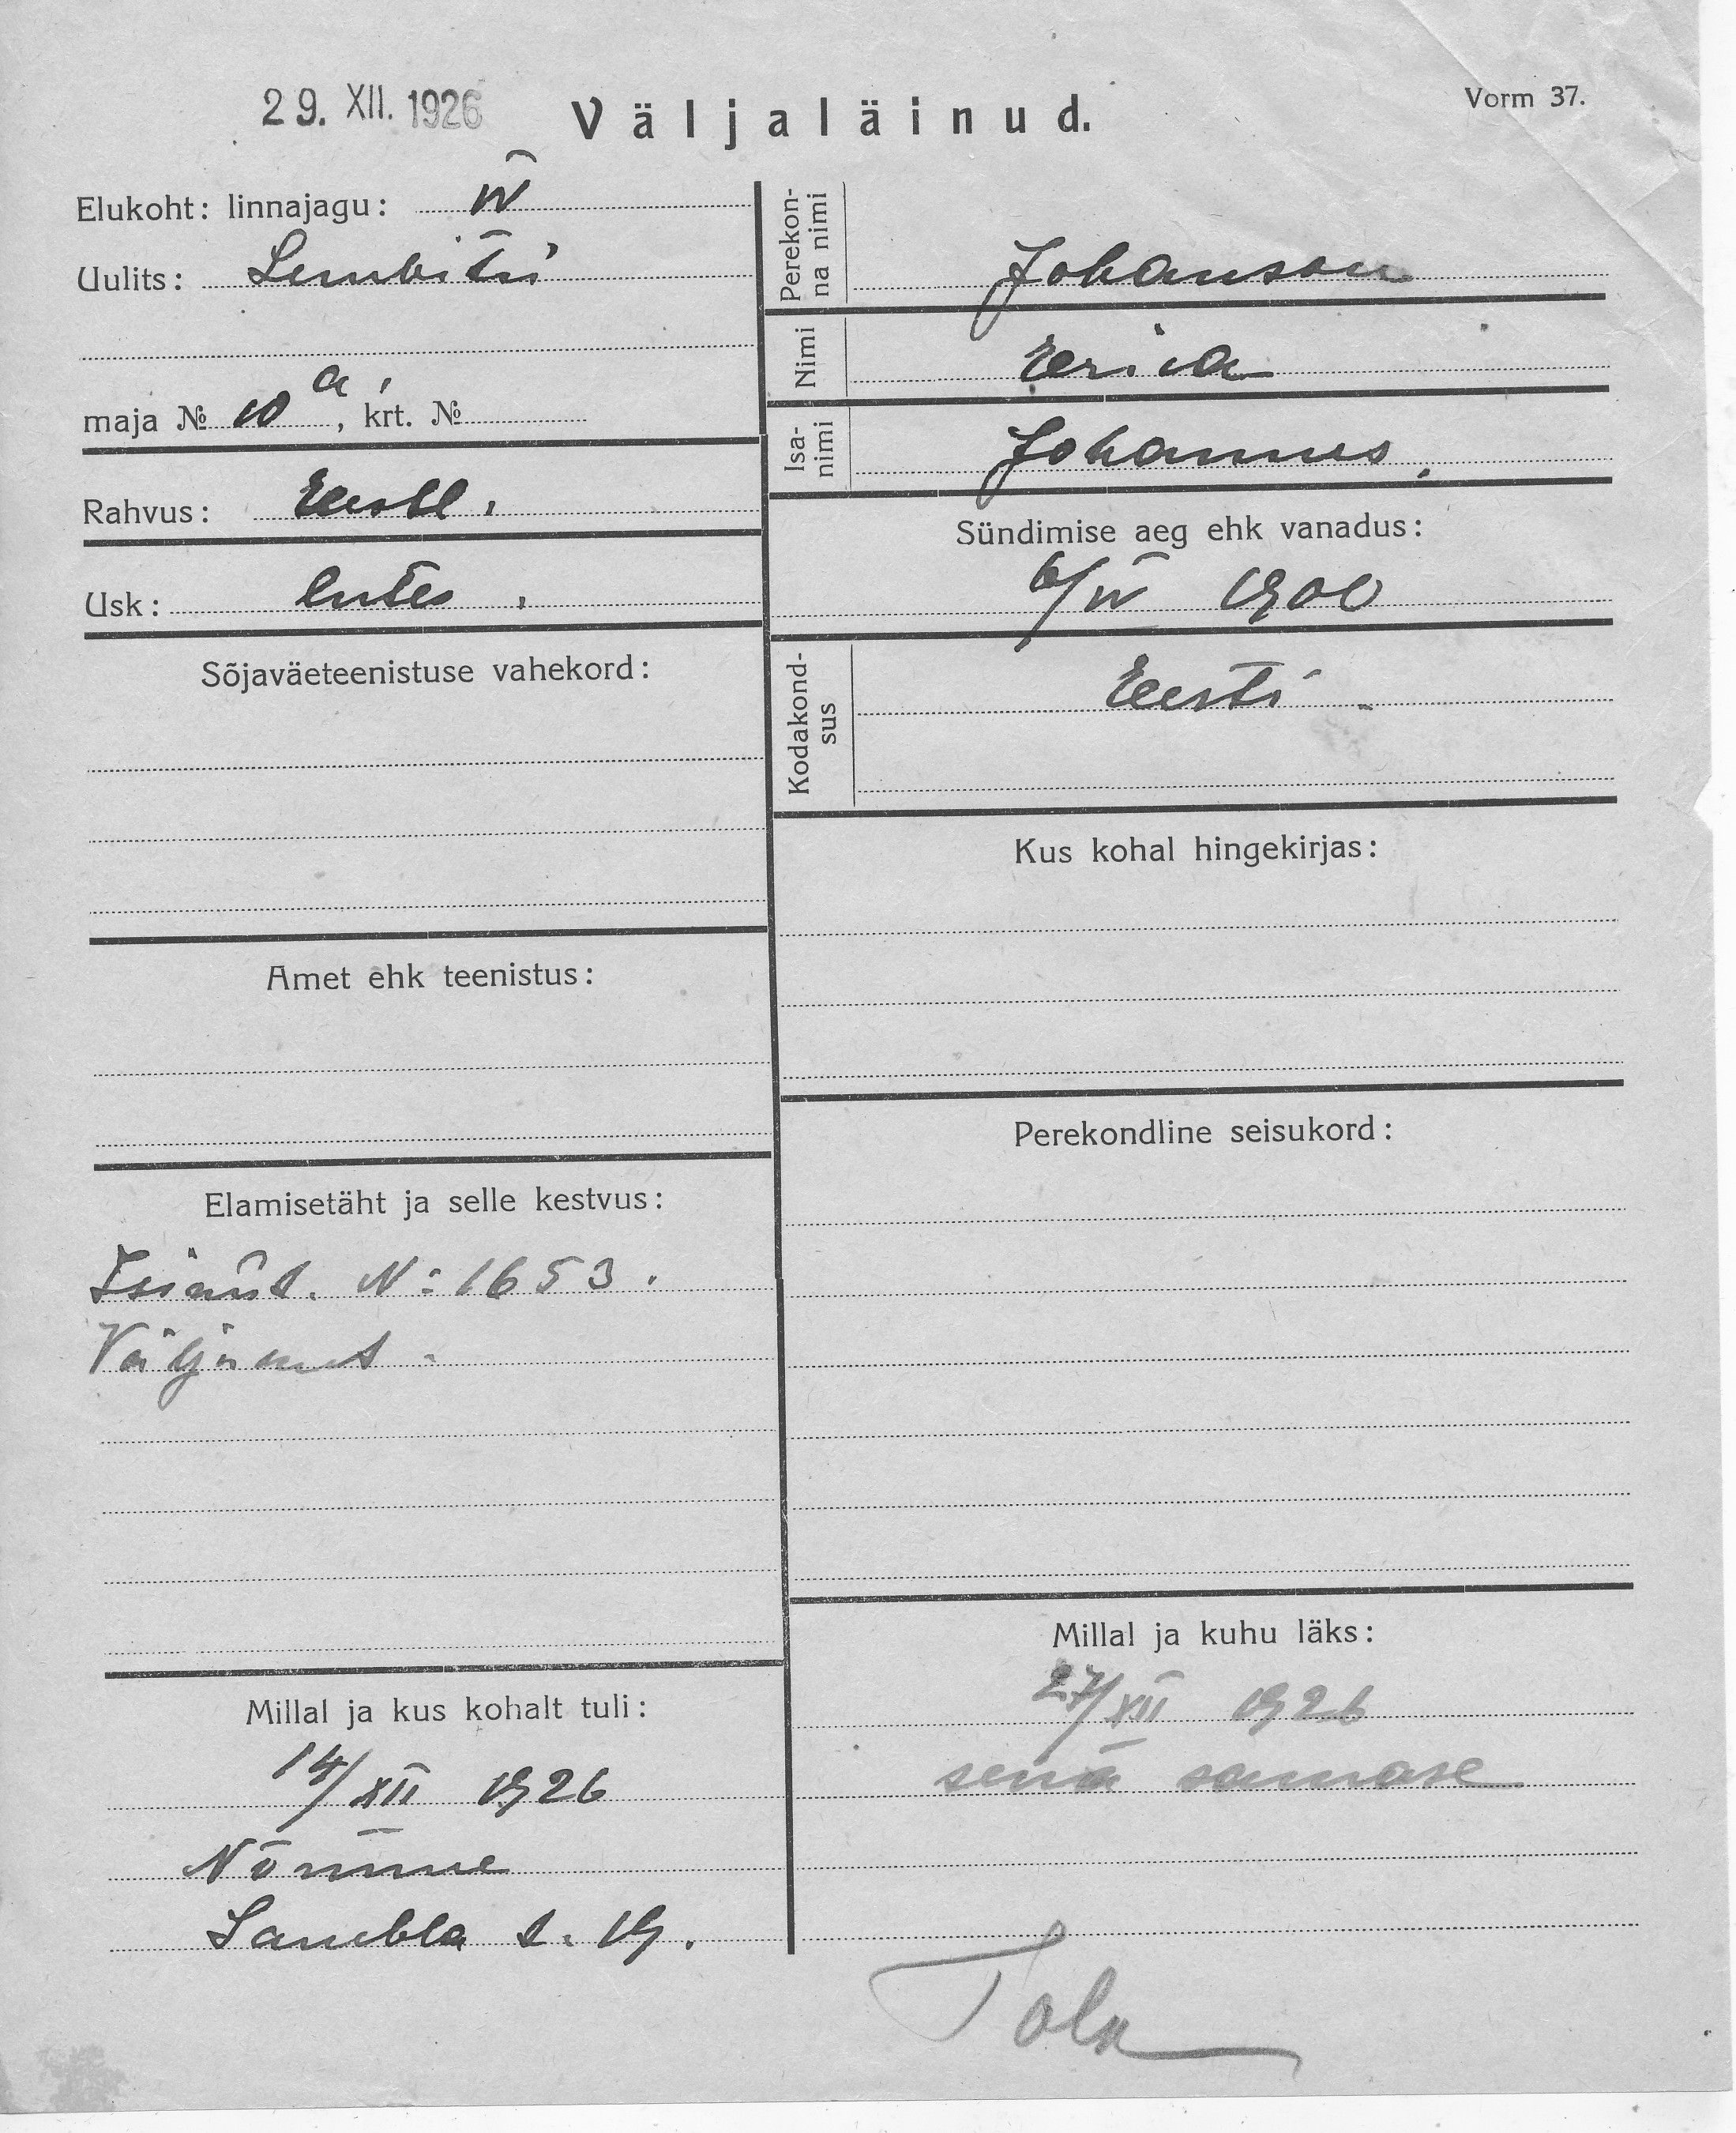 29. XII. 1926
Väljaläinud.
Vorm 37.
Elukoht: linnajagu: IV
Uulits: Lembitu
maja № 10a, krt. №
Rahvus: Eestl.
Usk: luter.
Sõjaväeteenistuse vahekord:
Amet ehk teenistus:
Elamisetäht ja selle kestvus:
N: 1653.
Millal ja kus kohalt tuli:
14/XII 1926
Nõmme
t. 19.
Perekonna nimi
Johanson
Nimi
Erica
Isanimi
Johannes.
Sündimise aeg ehk vanadus:
6/IV 1900
Kodakondsus
Eesti
Kus kohal hingekirjas:
Perekondline seisukord:
Millal ja kuhu läks:
27/XII 1926
senna samase